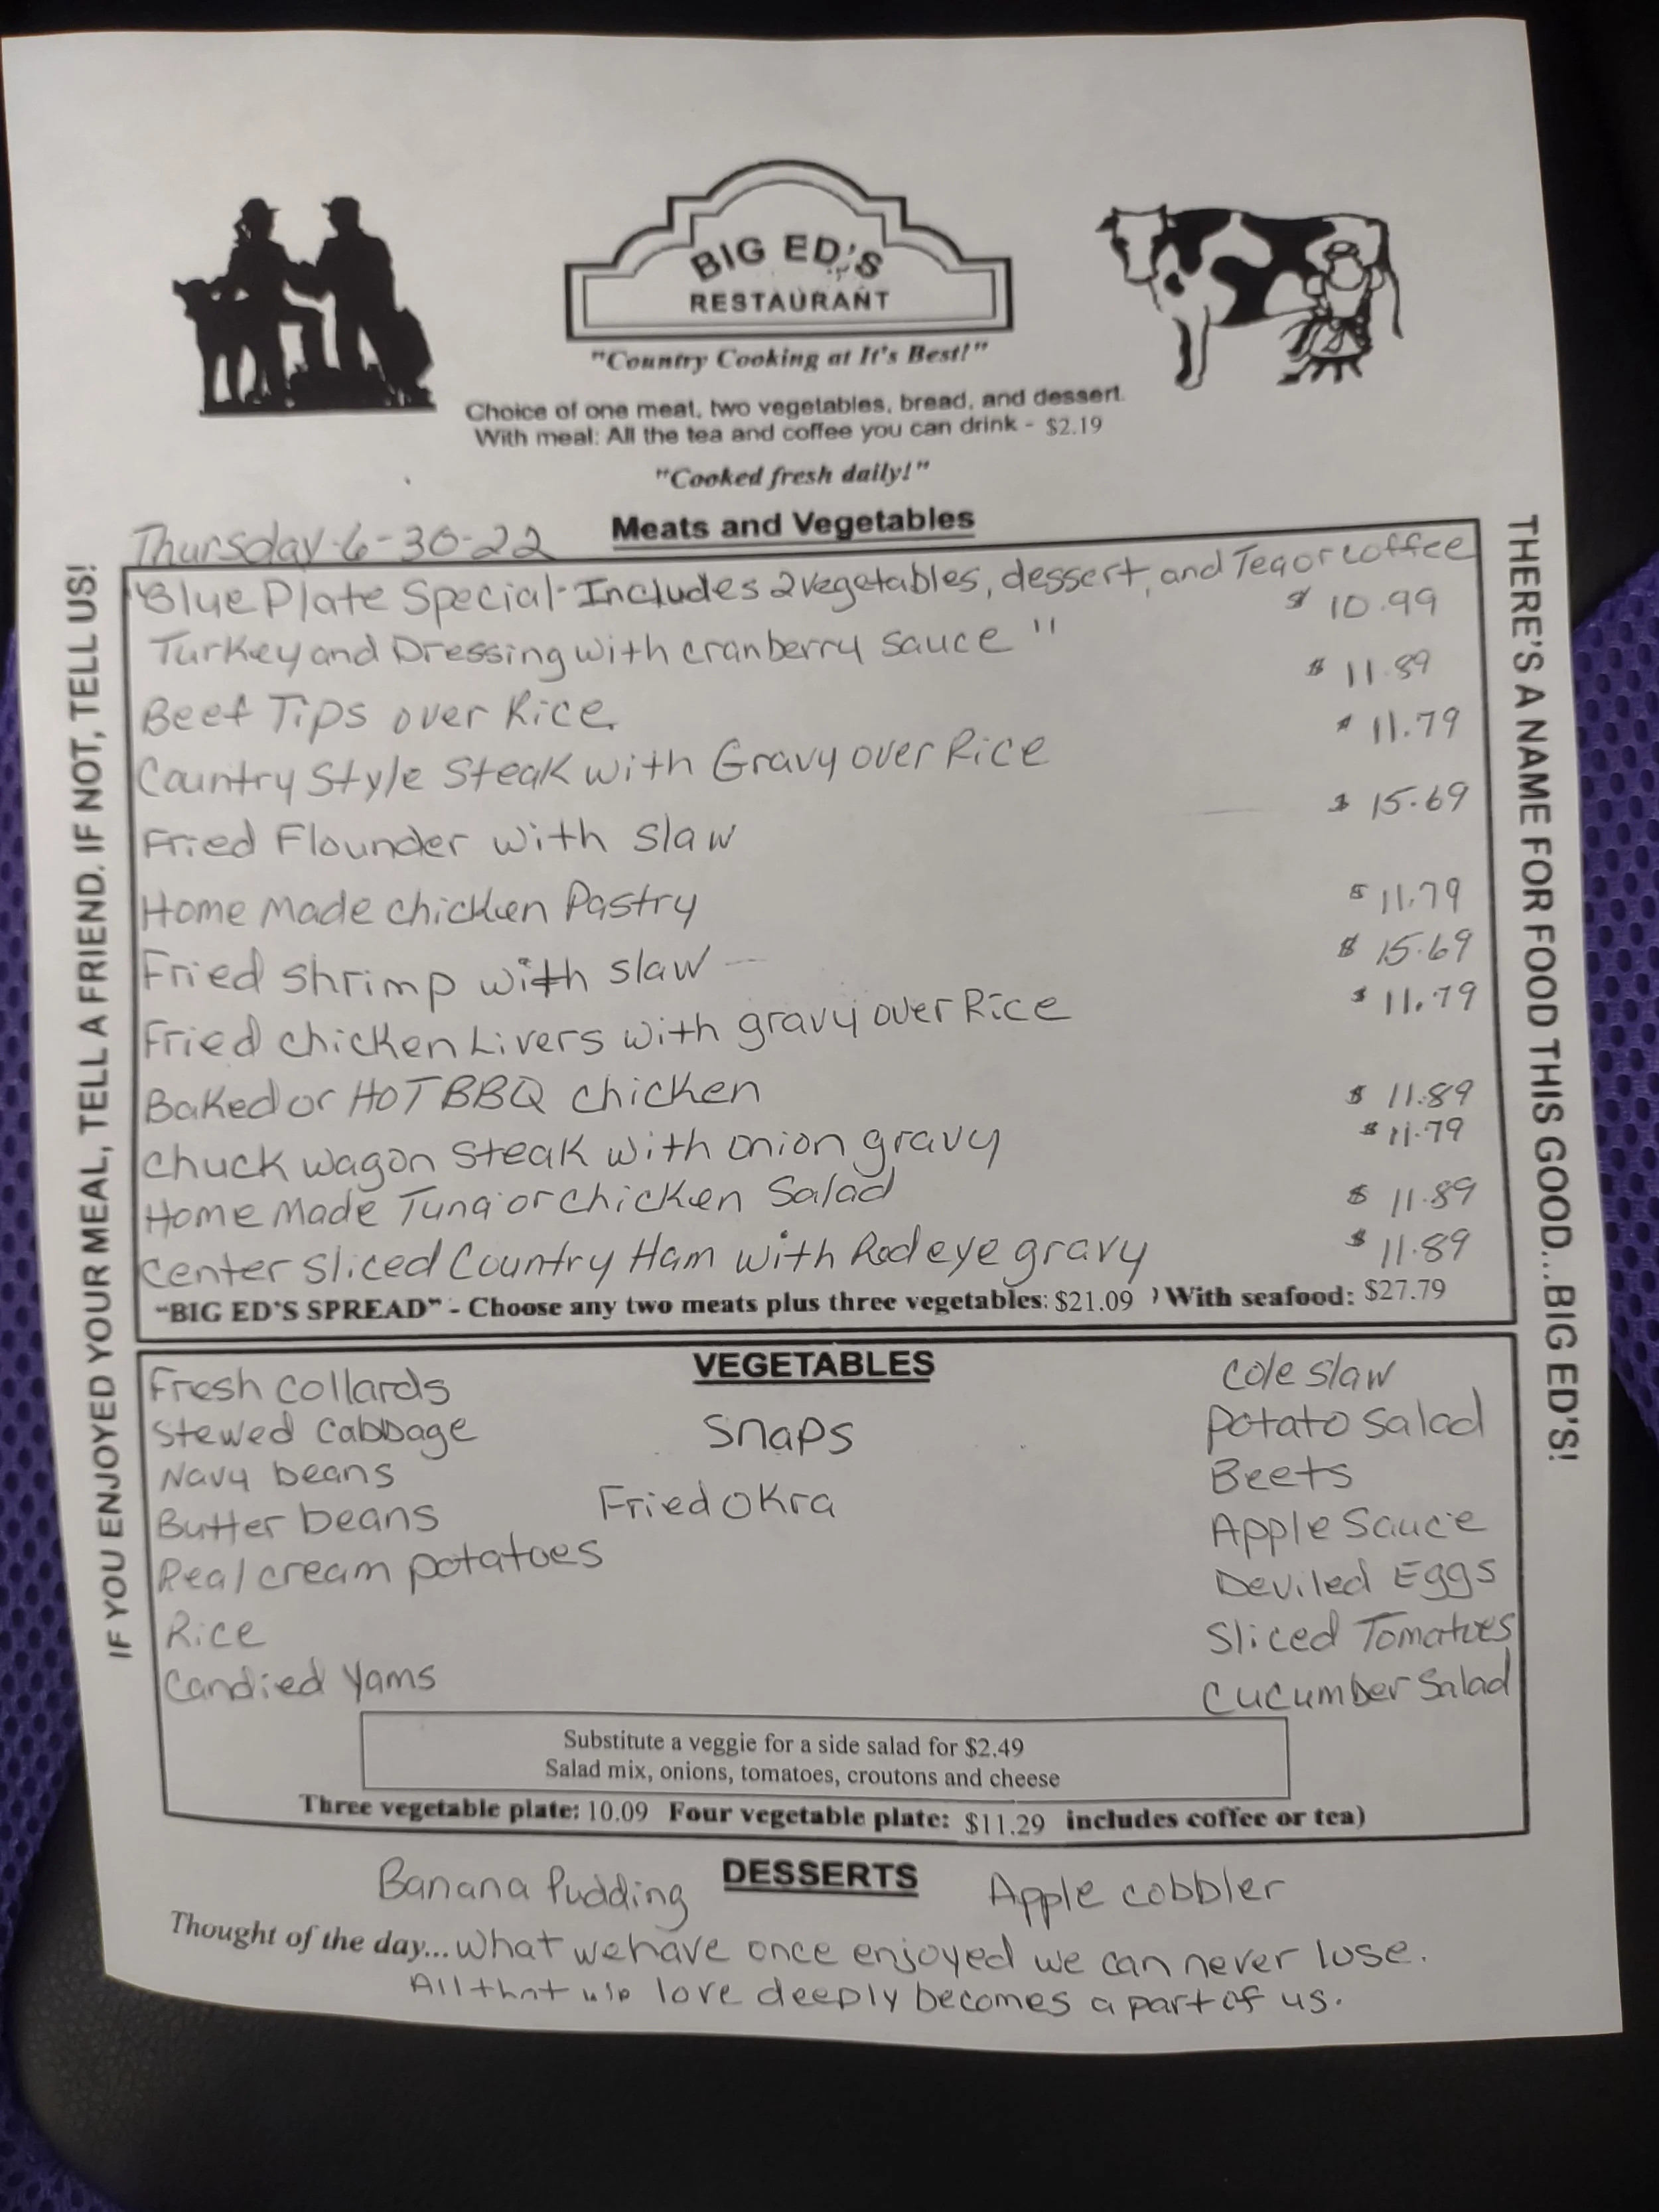 BIG ED'S
RESTAURANT
"Country Cooking at It's Best!"
Choice of one meat, two vegetables, bread, and dessert.
With meal: All the tea and coffee you can drink - $2.19
"Cooked fresh daily!"
Thursday-6-30-22 Meats and Vegetables
"Blue Plate Special-Includes 2 vegetables, dessert, and Tea or coffee
Turkey and Dressing with cranberry sauce" $10.99
Beef Tips over Rice $11.89
Country Style Steak with Gravy over Rice $11.79
Fried Flounder with slaw $15.69
Home Made chicken Pastry $11.79
Fried shrimp with slaw $15.69
Fried chicken Livers with gravy over Rice $11.79
Baked or HOT BBQ chicken $11.89
Chuck wagon steak with onion gravy $11.79
Home Made Tuna or chicken Salad $11.89
Center sliced Country Ham with Red eye gravy $11.89
"BIG ED'S SPREAD" - Choose any two meats plus three vegetables: $21.09 ) With seafood: $27.79
VEGETABLES
Fresh collards
Stewed Cabbage
Navy beans
Butter beans
Real cream potatoes
Rice
Candied Yams
Snaps
Fried Okra
Cole Slaw
Potato Salad
Beets
Apple Sauce
Deviled Eggs
Sliced Tomatoes
Cucumber Salad
Substitute a veggie for a side salad for $2.49
Salad mix, onions, tomatoes, croutons and cheese
Three vegetable plate: 10.09 Four vegetable plate: $11.29 includes coffee or tea)
DESSERTS
Banana Pudding Apple cobbler
Thought of the day... What we have once enjoyed we can never lose.
All that we love deeply becomes a part of us.
IF YOU ENJOYED YOUR MEAL, TELL A FRIEND. IF NOT, TELL US!
THERE'S A NAME FOR FOOD THIS GOOD...BIG ED'S!